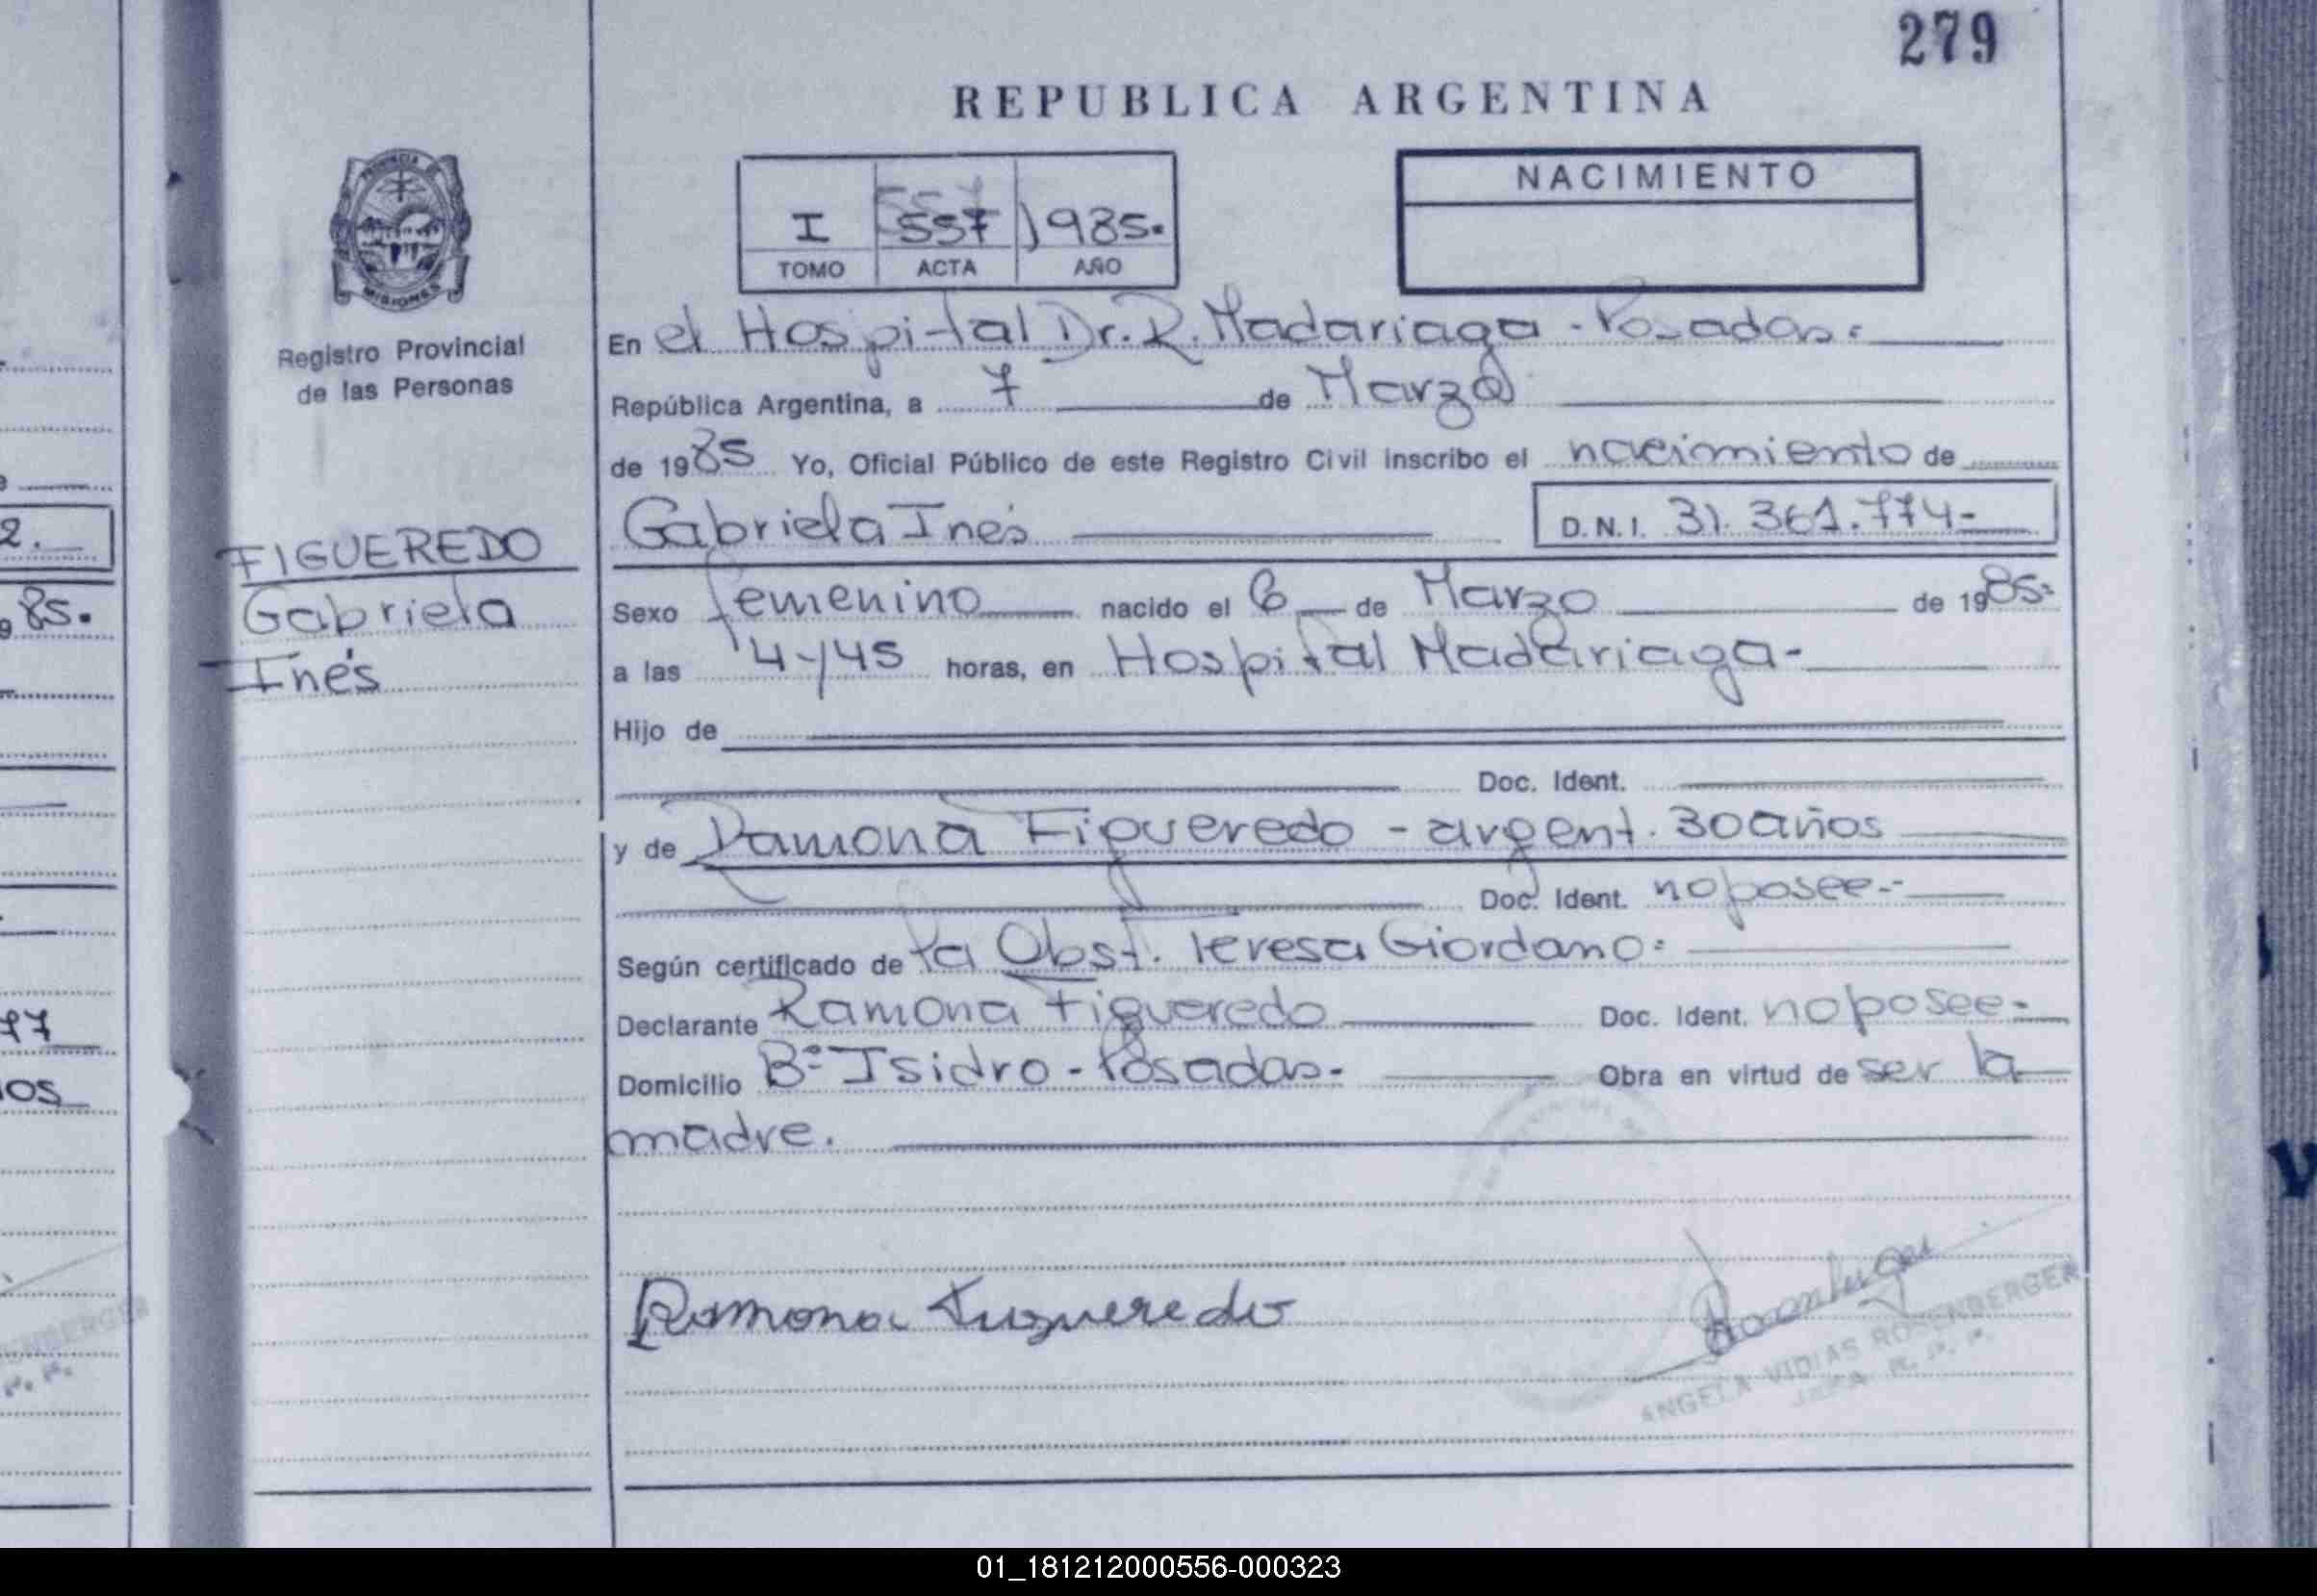 279
REPUBLICA ARGENTINA
PROVINCIA DE
MISIONES
Registro Provincial
de las Personas
I 557 1985.
TOMO ACTA AÑO
NACIMIENTO
En el Hospital Dr. R. Madariaga - Posadas.
República Argentina, a 7 de Marzo
de 1985 Yo, Oficial Público de este Registro Civil inscribo el nacimiento de
Gabriela Inés D.N.I. 31.361.774-
FIGUEREDO
Gabriela
Inés
Sexo femenino nacido el 6 de Marzo de 1985.
a las 14y45 horas, en Hospital Madariaga-
Hijo de
Doc. Ident.
y de Ramona Figueredo - argent. 30 años
Doc. Ident. no posee.-
Según certificado de la Obst. Teresa Giordano.
Declarante Ramona Figueredo Doc. Ident. no posee.
Domicilio Bº Isidro - Posadas. Obra en virtud de ser la
madre.
Ramona Figueredo
ANGELA VIDIAS ROSENBERGER
JEFA R. P. P.
2.
85.
77
OS
01_181212000556-000323